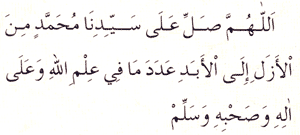 اَللّٰهُمَّ صَلِّ عَلَى سَيِّدِنَا مُحَمَّدٍ مِنَ
الْأَزَلِ إِلَى الْأَبَدِ عَدَدَ مَا فِي عِلْمِ اللهِ وَعَلَى
اٰلِهِ وَصَحْبِهِ وَسَلِّمْ